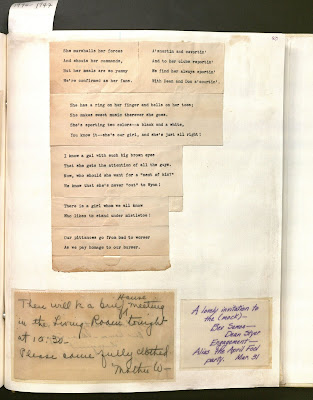 She marshalls her forces
And shouts her commands,
But her meals are so yummy
We're confirmed as her fans.
A'squirtin and cavortin'
And to her clubs exportin'
We find her always sportin'
With Dean and Don a'courtin'.
She has a ring on her finger and bells on her toes;
She makes sweet music wherever she goes.
She's sporting two colors--a black and a white,
You know it--she's our girl, and she's just all right!
I know a gal with such big brown eyes
That she gets the attention of all the guys.
Now, who should she want for a "mash of hits"
We know that she's never "out" to Wynn!
There is a girl whom we all know
Who likes to stand under mistletoe!
Our pittances go from bad to worser
As we pay homage to our bursar.
There will be a brief House meeting
in the Living Room tonight
at 10:30.
Please come fully clothed.
Mother W-
A lovely invitation to
the (mock)-
Bev Semes-
Dean Styer
Engagement-
Alias the April Fool
party. Mar. 31